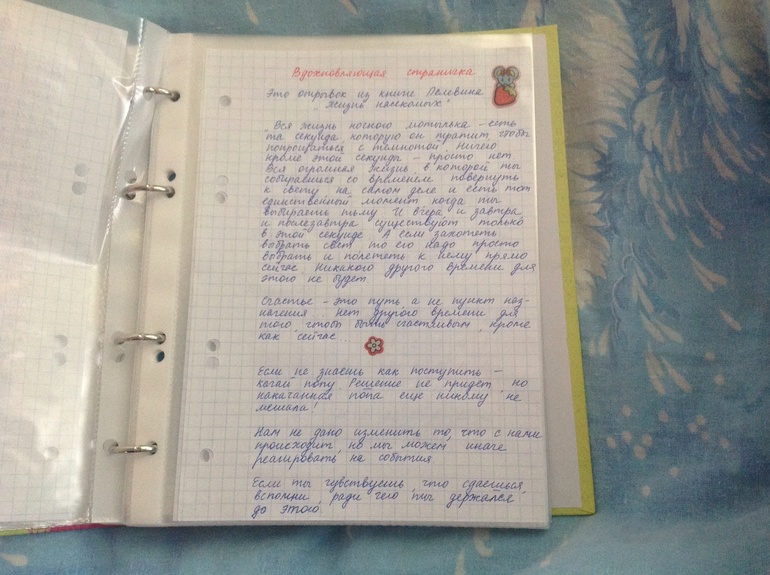 Вдохновляющая страничка
Это отрывок из книги Пелевина
"Жизнь насекомых"
"Вся жизнь ночного мотылька – есть
та секунда которую он тратит чтобы
попрощаться с темнотой. Ничего
кроме этой секунды – просто нет
Вся огромная жизнь, в которой ты
собираешься со временем повернуть
к свету на самом деле и есть тот
единственный момент когда ты
выбираешь тьму И вчера и завтра
и послезавтра существуют только
в этой секунде А если захотеть
выбрать свет то его надо просто
выбрать и полететь к нему прямо
сейчас Никакого другого времени для
этого не будет
Счастье – это путь а не пункт наз-
начения... Нет другого времени для
того чтобы быть счастливым, кроме
как сейчас...
Если не знаешь как поступить –
качай попу Решение не придет, но
накачанная попа еще никому не
мешала!
Нам не дано изменить то, что с нами
происходит, но мы можем иначе
реагировать на события.
Если ты чувствуешь, что сдаешься,
вспомни, ради чего ты держался
до этого.